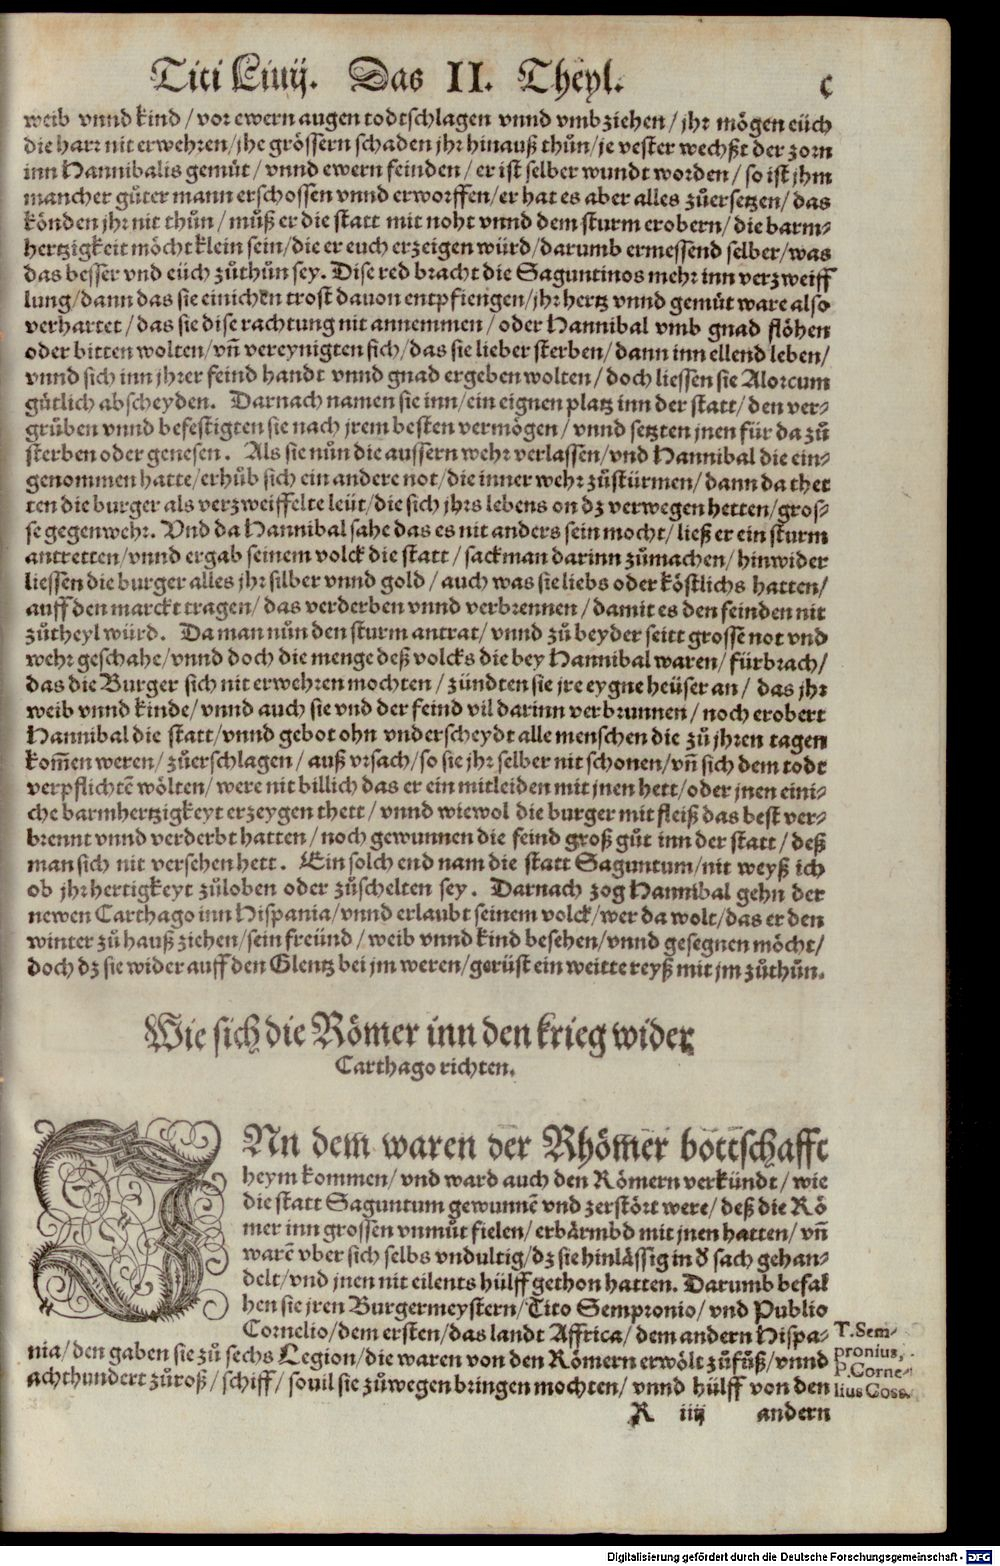 Titi Liuij. Das II. Theyl. c
weib vnnd kind / vor ewern augen todtschlagen vnnd vmbziehen / jhr mögen eüch
die harr nit erwehren / jhe grössern schaden jhr hinauß thůn / je vester wechßt der zorn
inn Hannibalis gemůt / vnnd ewern feinden / er ist selber wundt worden / so ist jhm
mancher gůter mann erschossen vnnd erworffen / er hat es aber alles zůersetzen / das
könden jhr nit thůn / můß er die statt mit noht vnnd dem sturm erobern / die barm-
hertzigkeit möcht klein sein / die er euch erzeigen würd / darumb ermessend selber / was
das besser vnd eüch zůthůn sey. Dise red bracht die Saguntinos mehr inn verzweiff
lung / dann das sie einichen trost dauon entpfiengen / jhr hertz vnnd gemůt ware also
verhartet / das sie dise rachtung nit annemmen / oder Hannibal vmb gnad flöhen
oder bitten wolten / vñ vereynigten sich / das sie lieber sterben / dann inn ellend leben /
vnnd sich inn jhrer feind handt vnnd gnad ergeben wolten / doch liessen sie Alorcum
gůtlich abscheyden. Darnach namen sie inn / ein eignen platz inn der statt / den ver-
grůben vnnd befestigten sie nach jrem besten vermögen / vnnd setzten jnen für da zů
sterben oder genesen. Als sie nůn die aussern wehr verlassen / vnd Hannibal die ein-
genommen hatte / erhůb sich ein andere not / die inner wehr zůstürmen / dann da thet
ten die burger als verzweiffelte leüt / die sich jhrs lebens on dz verwegen hetten / gros-
se gegenwehr. Vnd da Hannibal sahe das es nit anders sein mocht / ließ er ein sturm
antretten / vnnd ergab seinem volck die statt / sackman darinn zůmachen / hinwider
liessen die burger alles jhr silber vnnd gold / auch was sie liebs oder köstlichs hatten /
auff den marckt tragen / das verderben vnnd verbrennen / damit es den feinden nit
zůtheyl würd. Da man nůn den sturm antrat / vnnd zů beyder seitt grosse not vnd
wehr geschahe / vnnd doch die menge deß volcks die bey Hannibal waren / fürbrach /
das die Burger sich nit erwehren mochten / zündten sie jre eygne heüser an / das jhr
weib vnnd kinde / vnnd auch sie vnd der feind vil darinn verbrunnen / noch erobert
Hannibal die statt / vnnd gebot ohn vnderscheydt alle menschen die zů jhren tagen
kom̃en weren / zůerschlagen / auß vrsach / so sie jhr selber nit schonen / vñ sich dem todt
verpflichtē wölten / were nit billich das er ein mitleiden mit jnen hett / oder jnen eini-
che barmhertzigkeyt erzeygen thett / vnnd wiewol die burger mit fleiß das best ver-
brennt vnnd verderbt hatten / noch gewunnen die feind groß gůt inn der statt / deß
man sich nit versehen hett. Ein solch end nam die statt Saguntum / nit weyß ich
ob jhr hertigkeyt zůloben oder zůschelten sey. Darnach zog Hannibal gehn der
newen Carthago inn Hispania / vnnd erlaubt seinem volck / wer da wolt / das er den
winter zů hauß ziehen / sein freünd / weib vnnd kind besehen / vnnd gesegnen möcht /
doch dz sie wider auff den Glentz bei jm weren / gerüst ein weitte reyß mit jm zůthůn.
Wie sich die Römer inn den krieg wider
Carthago richten.
INn dem waren der Rhömer bottschafft
heym kommen / vnd ward auch den Römern verkündt / wie
die statt Saguntum gewunnē vnd zerstört were / deß die Rö
mer inn grossen vnmůt fielen / erbärmbd mit jnen hatten / vñ
warē vber sich selbs vndultig / dz sie hinlässig in d̕ sach gehan-
delt / vnd jnen nit eilents hülff gethon hatten. Darumb befal
hen sie jren Burgermeystern / Tito Sempronio / vnd Publio
Cornelio / dem ersten / das landt Affrica / dem andern Hispa-
nia / den gaben sie zů sechs Legion / die waren von den Römern erwölt zůfůß / vnnd
achthundert zůroß / schiff / souil sie zůwegen bringen mochten / vnnd hülff von den
T. Sem-
pronius,
P. Corne-
lius Coss.
R iiij andern
Digitalisierung gefördert durch die Deutsche Forschungsgemeinschaft - DFG